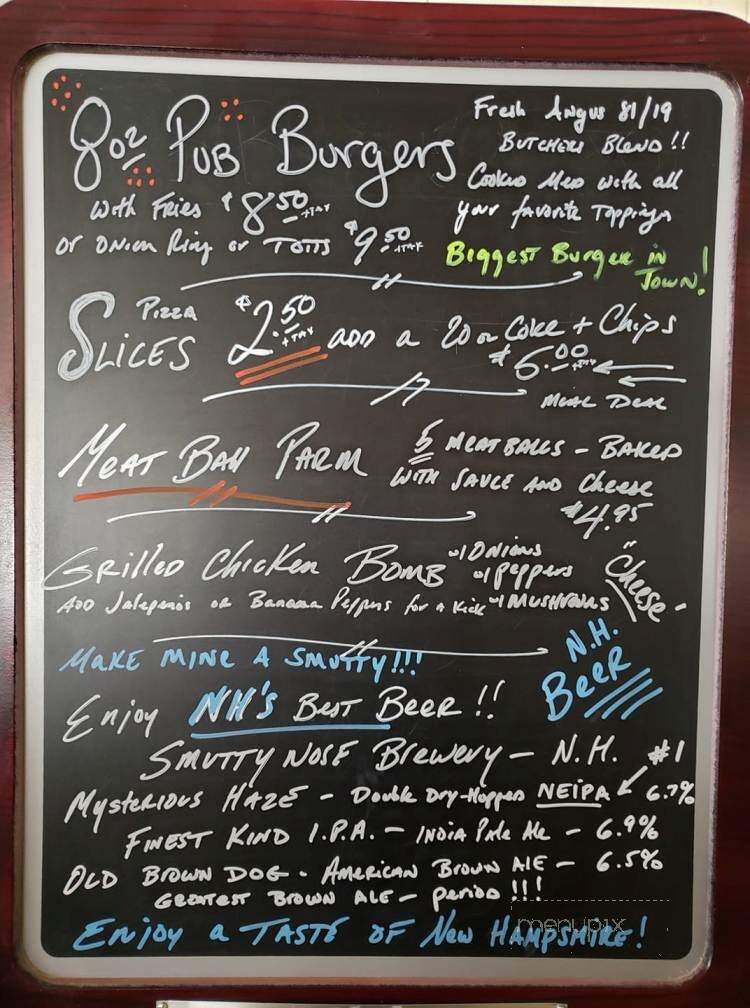 8oz Pub Burgers
with Fries $8.50 +TAX
or Onion Ring or Totts $9.50 +TAX
Fresh Angus 81/19
Butchers Blend!!
Cooked Med with all
your favorite Toppings
Biggest Burger in
Town!
Pizza
Slices $2.50 +TAX add a 20 oz Coke + Chips
$6.00 +TAX
Meal Deal
Meat Ball Parm
5 Meatballs - Baked
with Sauce and Cheese
$4.95
Grilled Chicken Bomb w/ Onions
w/ Peppers
Add Jalepenos or Banana Peppers for a Kick w/ Mushrooms
"Cheese"
Make Mine A Smutty!!!
N.H.
Beer
Enjoy NH's Best Beer!!
Smutty Nose Brewery - N.H. #1
Mysterious Haze - Double Dry-Hopped NEIPA 6.7%
Finest Kind I.P.A. - India Pale Ale - 6.9%
Old Brown Dog - American Brown Ale - 6.5%
Greatest Brown Ale - period!!!
Enjoy a Taste of New Hampshire!
menupix